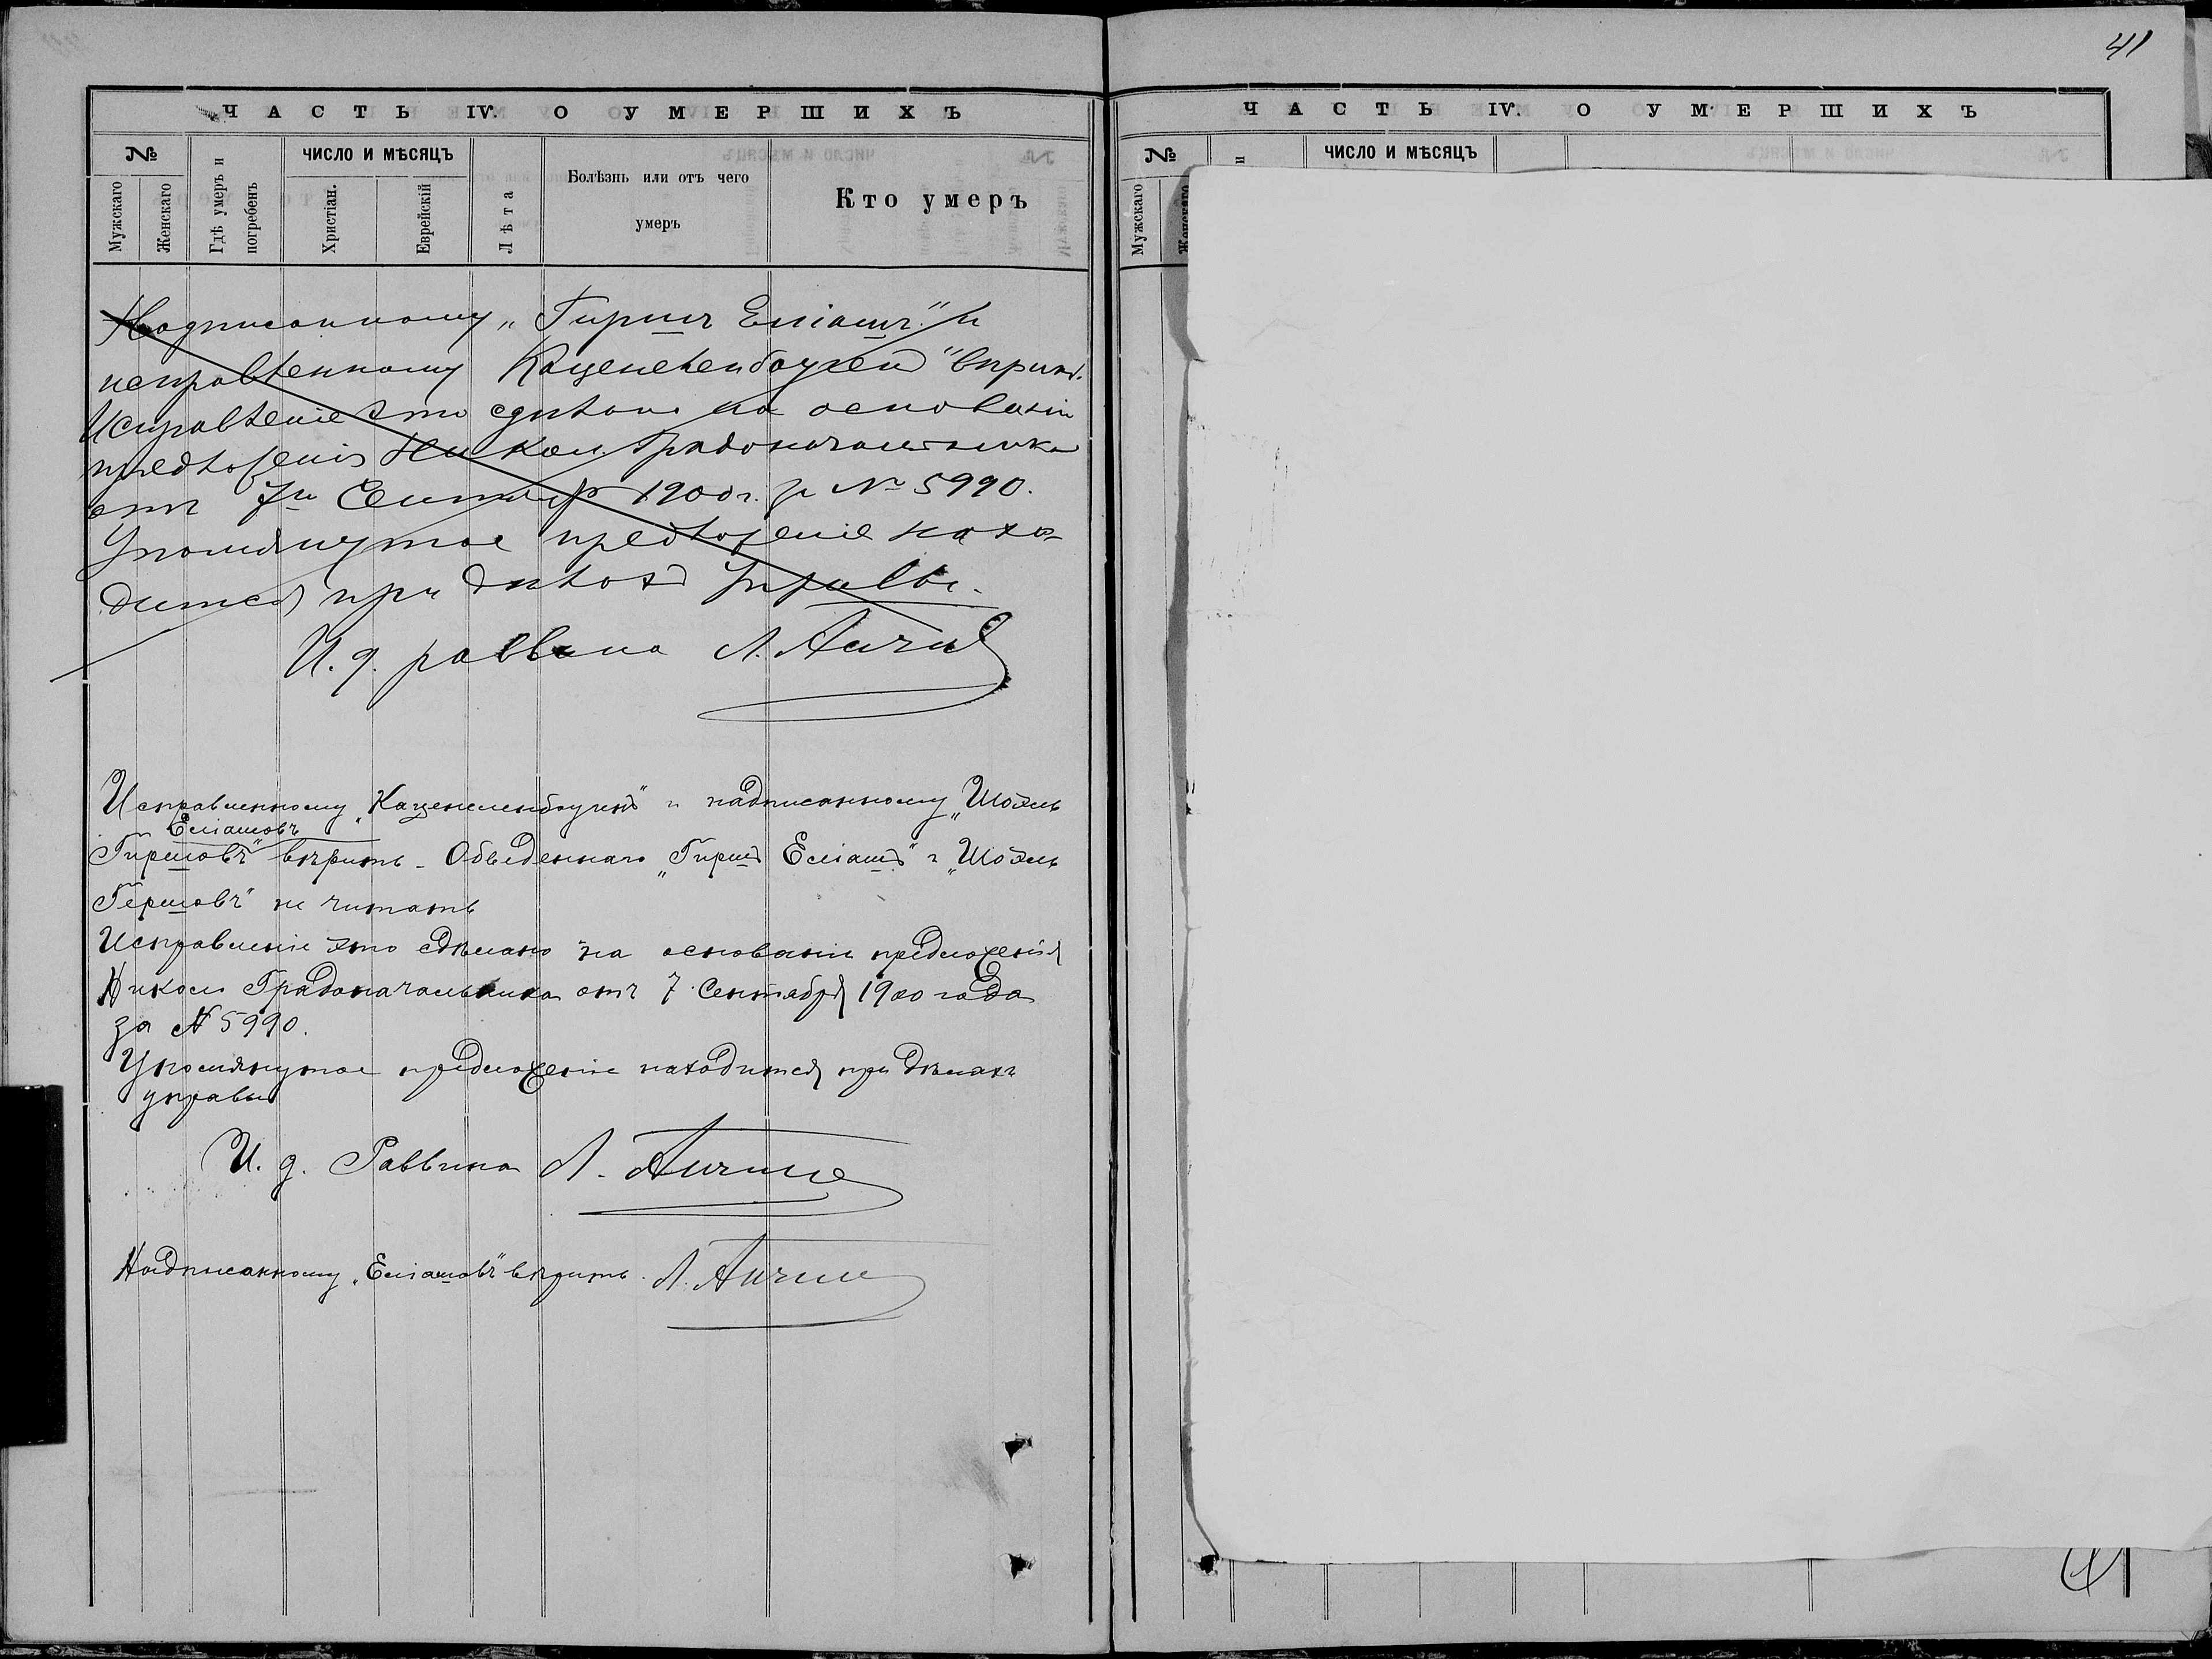 ЧАСТЬ IV. О УМЕРШИХЪ
№
Мужскаго
Женскаго
Гдѣ умеръ и погребенъ
ЧИСЛО И МѢСЯЦЪ
Христіан.
Еврейскій
Лѣта
Болѣзнь или отъ чего умеръ
Кто умеръ
Надписанному „Гиршъ Еліашъ" и
исправленному Каценеленбоугенъ" вѣрить.
Исправленіе это сдѣлано на основаніи
предложенія Никол. Градоначальника
отъ 7го Сентября 1900 г. за № 5990.
Упомянутое предложеніе нахо-
дится при дѣлахъ управы.
И. д. раввина Л.
Исправленному „Каценеленбоугенъ" и надписанному „Шоэль
Еліашовъ
Гиршовъ" вѣрить. Обведеннаго „Гиршъ Еліашъ" и „Шоэль
Гершовъ" не читать
Исправленіе это сдѣлано на основаніи предложенія
Никол. Градоначальника отъ 7 Сентября 1900 года
за № 5990.
Упомянутое предложеніе находится при дѣлахъ
управы
И. д. Раввина Л.
Надписанному „Еліашовъ" вѣрить. Л.
41
ЧАСТЬ IV. О УМЕРШИХЪ
№
Мужскаго
Женскаго
и
ЧИСЛО И МѢСЯЦЪ